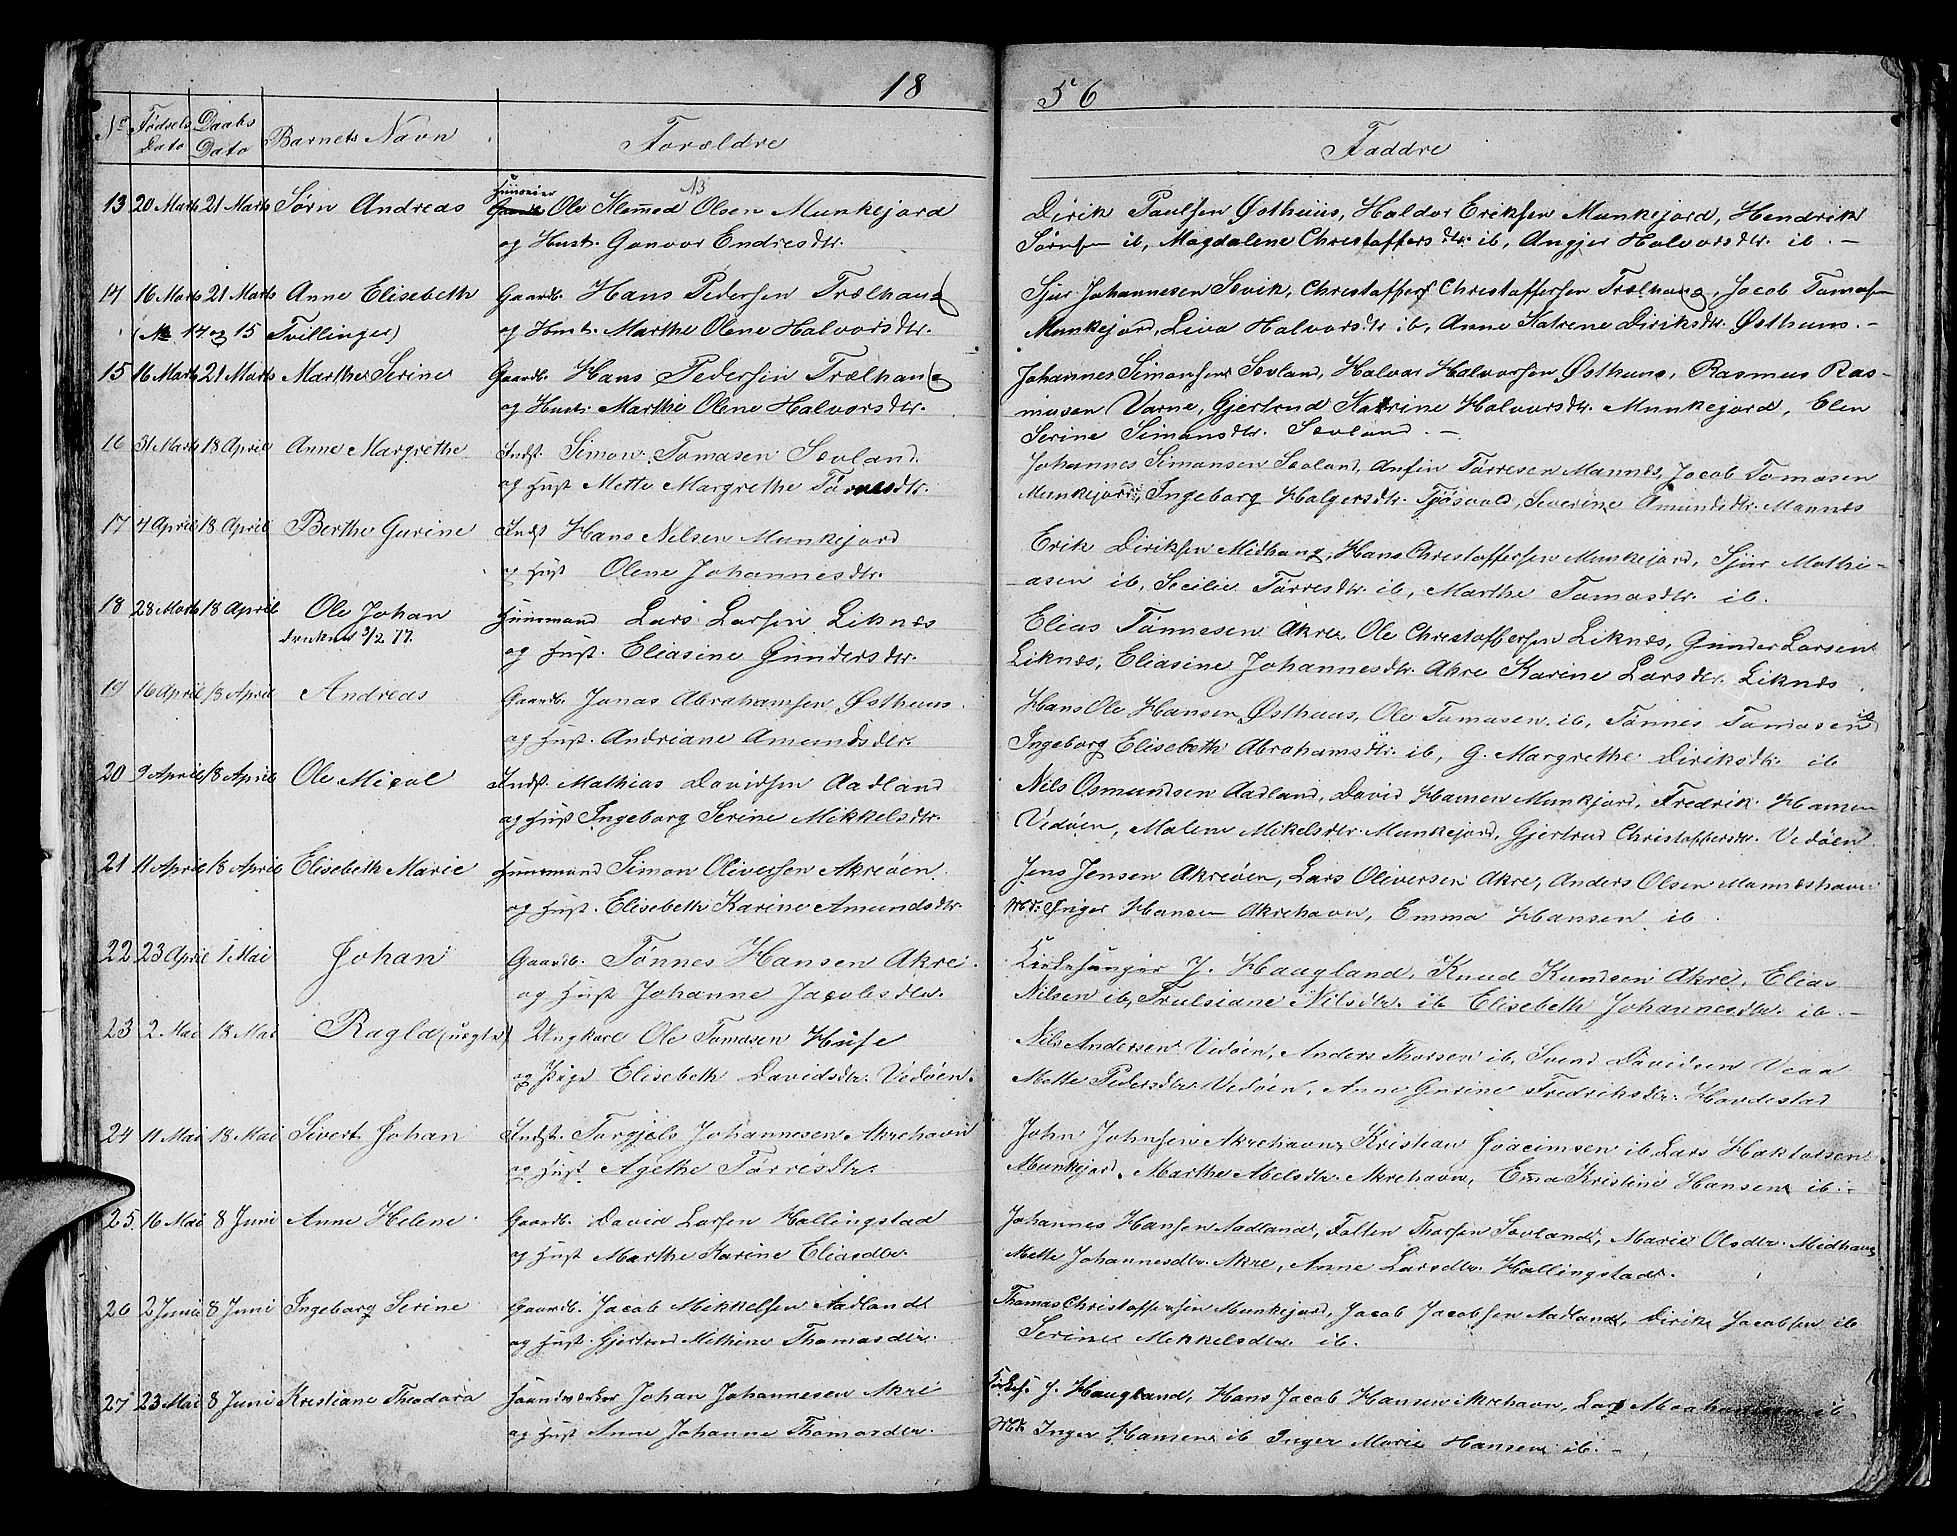 18 56
No Fødsels Dato Daabs Dato Barnets Navn Forældre Faddre
13 20 Marts 21 Marts Sørn Andreas Huusmand Ole Olsen Munkejord
og Hust. Gonvor Endresdtr.
Dirik Paulsen Østhuus, Haldor Eriksen Munkejord, Hendrik
Sørnsen ib, Magdalene Christoffersdtr. ib, Angjer Halvorsdtr. ib. —
14 16 Marts 21 Marts Anne Elisebeth Gaardb. Hans Pedersen Trælhaug
(No 14 og 15 Tvillinger) og Hust. Marthe Olene Halvorsdtr.
Sjur Johannesen Sevik, Christoffer Christoffersen Trælhaug, Jacob Tomasen
Munkejord, Liva Halvorsdtr ib, Anne Katrene Diriksdtr. Østhuus. —
15 16 Marts 21 Marts Marthe Serine Gaardb. Hans Pedersen Trælhaug
og Hust. Marthe Olene Halvorsdtr.
Johannes Simonsen Sevland, Halvor Halvorsen Østhuus, Rasmus Ras-
musen Varne, Gjertrud Katrine Halvorsdtr. Munkejord, Elen
Serine Simonsdtr. Sevland. —
16 31 Marts 18 April Anne Margrethe Indst. Simon Tomasen Sevland
og Hust Mette Margrethe Tørresdtr.
Johannes Simonsen Sevland, Anfin Tørresen Mannes, Jacob Tomasen
Munkejord, Ingeborg Holgersdtr. Tjøsvold, Severine Amundsdtr. Mannes
17 4 April 18 April Berthe Gurine Indst Hans Nilsen Munkejord
og Hust Olene Johannesdtr.
Erik Diriksen Midhaug, Hans Christoffersen Munkejord, Sjur Mathi-
asen ib, Secilie Tørresdtr. ib, Marthe Tomasdtr. ib.
18 28 Marts 18 April Ole Johan Huusmand Lars Larsen Liknes
3/2 77. og Hust. Eliasine Gundersdtr.
Elias Tønnesen Akre, Ole Christoffersen Liknes, Gunder Larsen
Liknes, Eliasine Johannesdtr. Akre Karine Larsdtr. Liknes
19 16 April 18 April Andreas Gaardb. Jonas Abrahamsen Østhuus
og Hust. Andriane Amundsdtr.
Hans Ole Hansen Østhuus, Ole Tomasen ib, Tønnes Tomasen ib
Ingeborg Elisebeth Abrahamsdtr. ib, G. Margrethe Diriksdtr. ib
20 9 April 18 April Ole Micel Indst. Mathias Davidsen Aadland
og Hust Ingeborg Serine Mikkelsdtr.
Nils Osmundsen Aadland, David Hansen Munkjord, Fredrik Hansen
Vedøen, Malene Mikelsdtr. Munkejord, Gjertrud Christoffersdtr. Vedøen
21 11 April 18 April Elisebeth Marie Huusmand Simon Oliversen Akreøen
og Hust. Elisebeth Karine Amundsdtr.
Jens Jensen Akreøen, Lars Oliversen Akre, Anders Olsen Manneshavn
Inger Hansen Akrehavn, Emma Hansen ib
22 23 April 1 Mai Johan Gaardb. Tønnes Hansen Akre
og Hust Johanne Jacobsdtr.
Kirkesanger J. Haugland, Knud Knudsen Akre, Elias
Nilsen ib, Trulsiane Nilsdtr. ib Elisebeth Johannesdtr. ib. —
23 2 Mai 18 Mai Ragla (uægte) Ungkarl Ole Tomasen
og Pige Elisebeth Davidsdtr. Vedøen.
Nils Andersen Vedøen, Anders Thorsen ib, Svend Davidsen Veaa
Mette Pedersdtr. Vedøen, Anne Gurine Fredriksdtr. Hovdestad
24 11 Mai 18 Mai Sivert Johan Indst. Torgjels Johannesen Akrehavn
og Hust Agethe Tørresdtr.
John Johnsen Akrehavn, Kristian Joacimsen ib, Lars Haktorsen
Munkejord, Marthe Abelsdtr. Akrehavn, Emma Kristine Hansen ib. —
25. 16 Mai 8 Juni Anne Helene Gaardb. David Larsen Hallingstad
og Hust Marthe Karine Eliasdtr.
Johannes Hansen Aadland, Falten Thorsen Sevland, Marie Olsdtr. Midhaug
Mette Johannesdtr. Akre, Anne Larsdtr. Hallingstad.
26 2 Juni 8 Juni Ingeborg Serine Gaardb. Jacob Mikkelsen Aadland
og Hust. Gjertrud Mithine Thomasdtr.
Thomas Christoffersen Munkejord, Jacob Jacobsen Aadland, Dirik Jacobsen ib
Serine Mekkelsdtr. ib.
27 23 Mai 8 Juni Kristiane Theodora Haandværker Johan Johannesen Akre
og Hust Anne Johanne Thomasdtr.
J. Haugland, Hans Jacob Hansen Akrehavn, Lars ib
Inger Hansen ib Inger Marie Hansen ib. —